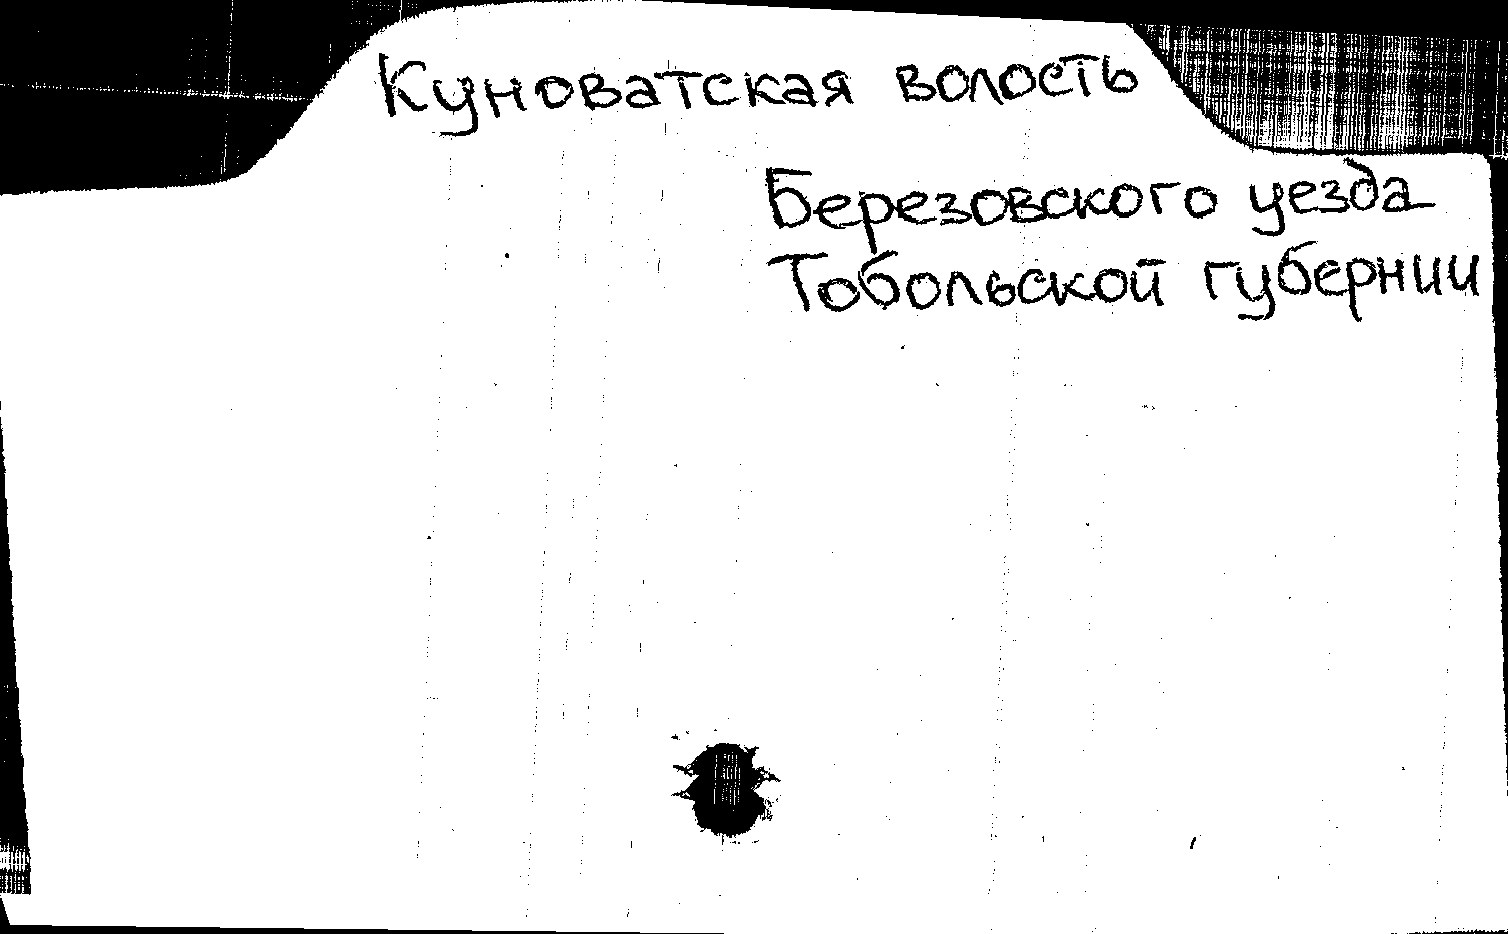 Куноватская волость
Березовского уезда
Тобольской губернии